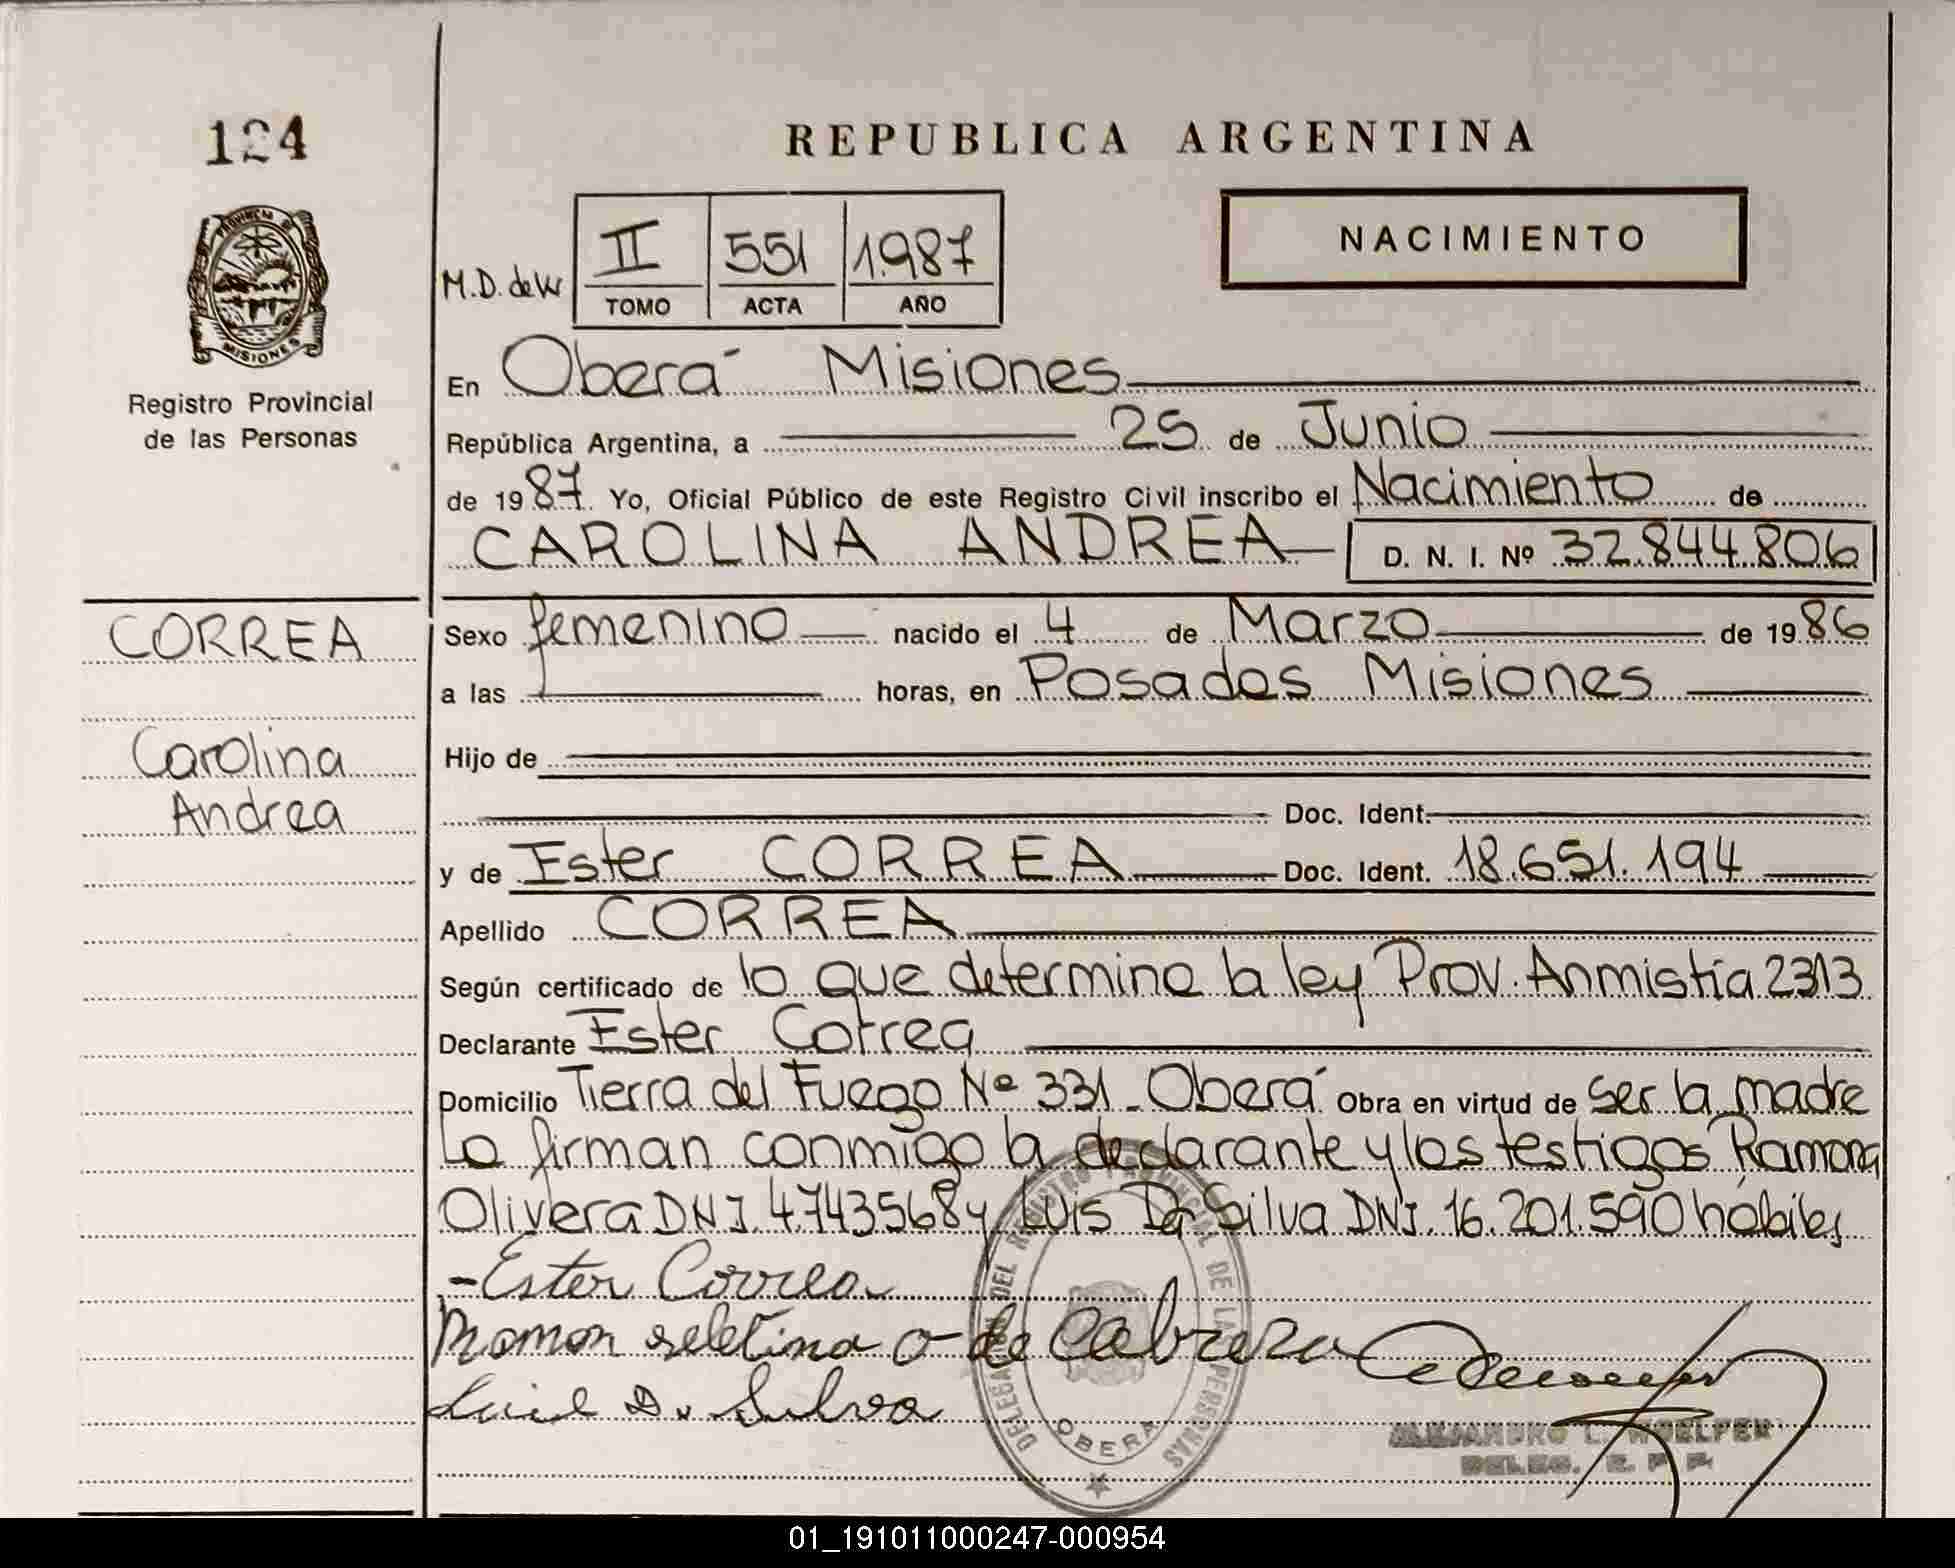 124
REPUBLICA ARGENTINA
PROVINCIA DE
MISIONES
Registro Provincial
de las Personas
M.D. de W
II 551 1.987
TOMO ACTA AÑO
NACIMIENTO
En Oberá Misiones
República Argentina, a 25 de Junio
de 1987. Yo, Oficial Público de este Registro Civil inscribo el Nacimiento de
CAROLINA ANDREA D. N. I. Nº 32.844.806
CORREA
Carolina
Andrea
Sexo femenino nacido el 4 de Marzo de 1986
a las horas, en Posadas Misiones
Hijo de
Doc. Ident.
y de Ester CORREA Doc. Ident. 18.651.194
Apellido CORREA
Según certificado de lo que determina la ley Prov. Anmistía 2313
Declarante Ester Correa
Domicilio Tierra del Fuego Nº 331 - Oberá Obra en virtud de ser la madre
La firman conmigo la declarante y los testigos Ramona
Olivera DNI 4.743568 y Luis Da Silva DNI. 16.201.590 hábiles
- Ester Correa
de Cabrera
Luis D. Silva
DELEGACION DEL REGISTRO PROVINCIAL DE LAS PERSONAS
OBERA
ALEJANDRO L. HOELFER
DELEG. R. P. P.
01_191011000247-000954